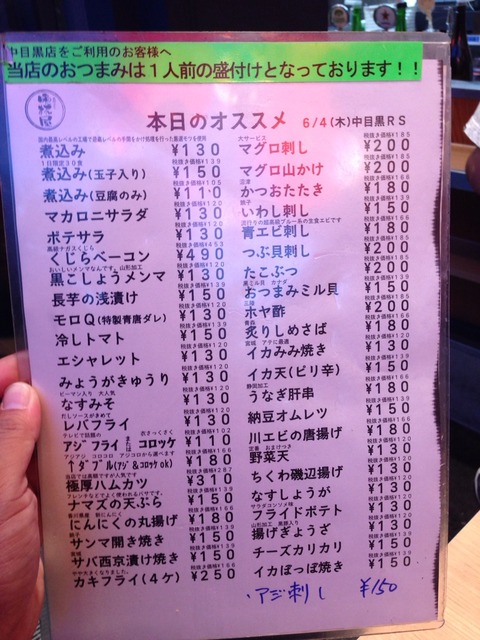 中目黒店をご利用のお客様へ
当店のおつまみは1人前の盛付けとなっております!!
本日のオススメ 6/4(木)中目黒RS
煮込み ¥130
1日限定30食
煮込み(玉子入り) ¥150
煮込み(豆腐のみ) ¥110
マカロニサラダ ¥130
ポテサラ ¥130
くじらベーコン ¥490
黒こしょうメンマ ¥130
長芋の浅漬け ¥150
モロQ(特製青唐ダレ) ¥130
冷しトマト ¥150
エシャレット ¥130
みょうがきゅうり ¥130
なすみそ ¥130
レバフライ ¥130
アジフライ または コロッケ ¥110
↑ダブル(アジ&コロッケok) ¥180
極厚ハムカツ ¥310
ナマズの天ぷら ¥150
にんにくの丸揚げ ¥180
サンマ開き焼き ¥150
サバ西京漬け焼き ¥150
カキフライ(4ケ) ¥250
大サービス
マグロ刺し ¥200
マグロ山かけ ¥200
かつおたたき ¥180
いわし刺し ¥150
青エビ刺し ¥180
つぶ貝刺し ¥200
たこぶつ ¥200
おつまみミル貝 ¥150
ホヤ酢 ¥200
炙りしめさば ¥180
イカみみ焼き ¥150
イカ天(ピリ辛) ¥150
うなぎ肝串 ¥180
納豆オムレツ ¥150
川エビの唐揚げ ¥180
野菜天 ¥130
ちくわ磯辺揚げ ¥130
なすしょうが ¥130
フライドポテト ¥130
揚げぎょうざ ¥130
チーズカリカリ ¥130
イカぽっぽ焼き ¥150
・アジ刺し ¥150